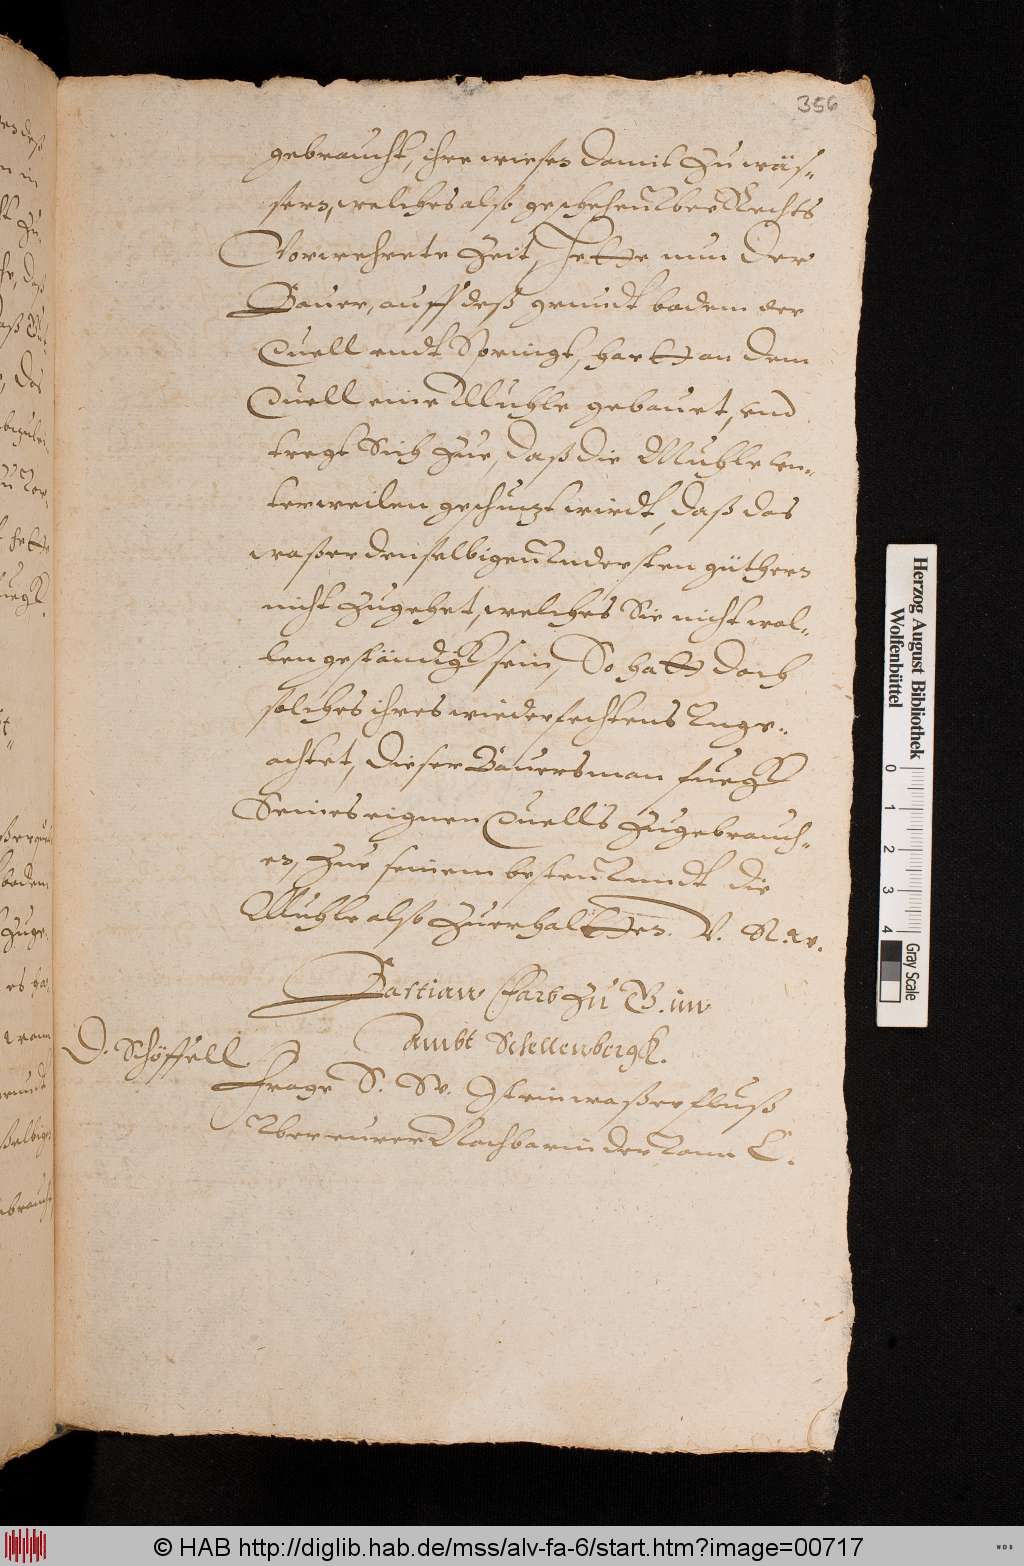 356
gebraucht, ihre wiesen damit zu wäs-
sern, welches also geschehen uber Rechts
Vorwehrete Zeit, hette nun der
Bauer, auff deß grundt bodem der
Quell endt Springt, hartt an dem
Quell eine Muhle gebauet, und
tregt Sich zue, daß die Muhle un-
terweilen geschutzt wirdt, daß das
waßer denselbigen Understen güthern
nicht zugehet, welches Sie nicht wol-
len gestendigk sein, So hatt doch
solches ihres wiederfechtens Unge-
achtet, dieser Bauersman fuegk
Seines eignen Quells zugebrauch-
en, zue seinem besten Unndt die
Muhle also zuerhaltten. V. R. w.
Bastian Farb zu B. im
Ambt Schellenbergk.
D. Schöffell
Frage S. Ist ein waßerfluß
Uber eurer Nachbarin der C.
Herzog August Bibliothek
Wolfenbüttel
0 1 2 3 4
Gray Scale
© HAB http://diglib.hab.de/mss/alv-fa-6/start.htm?image=00717
WDB